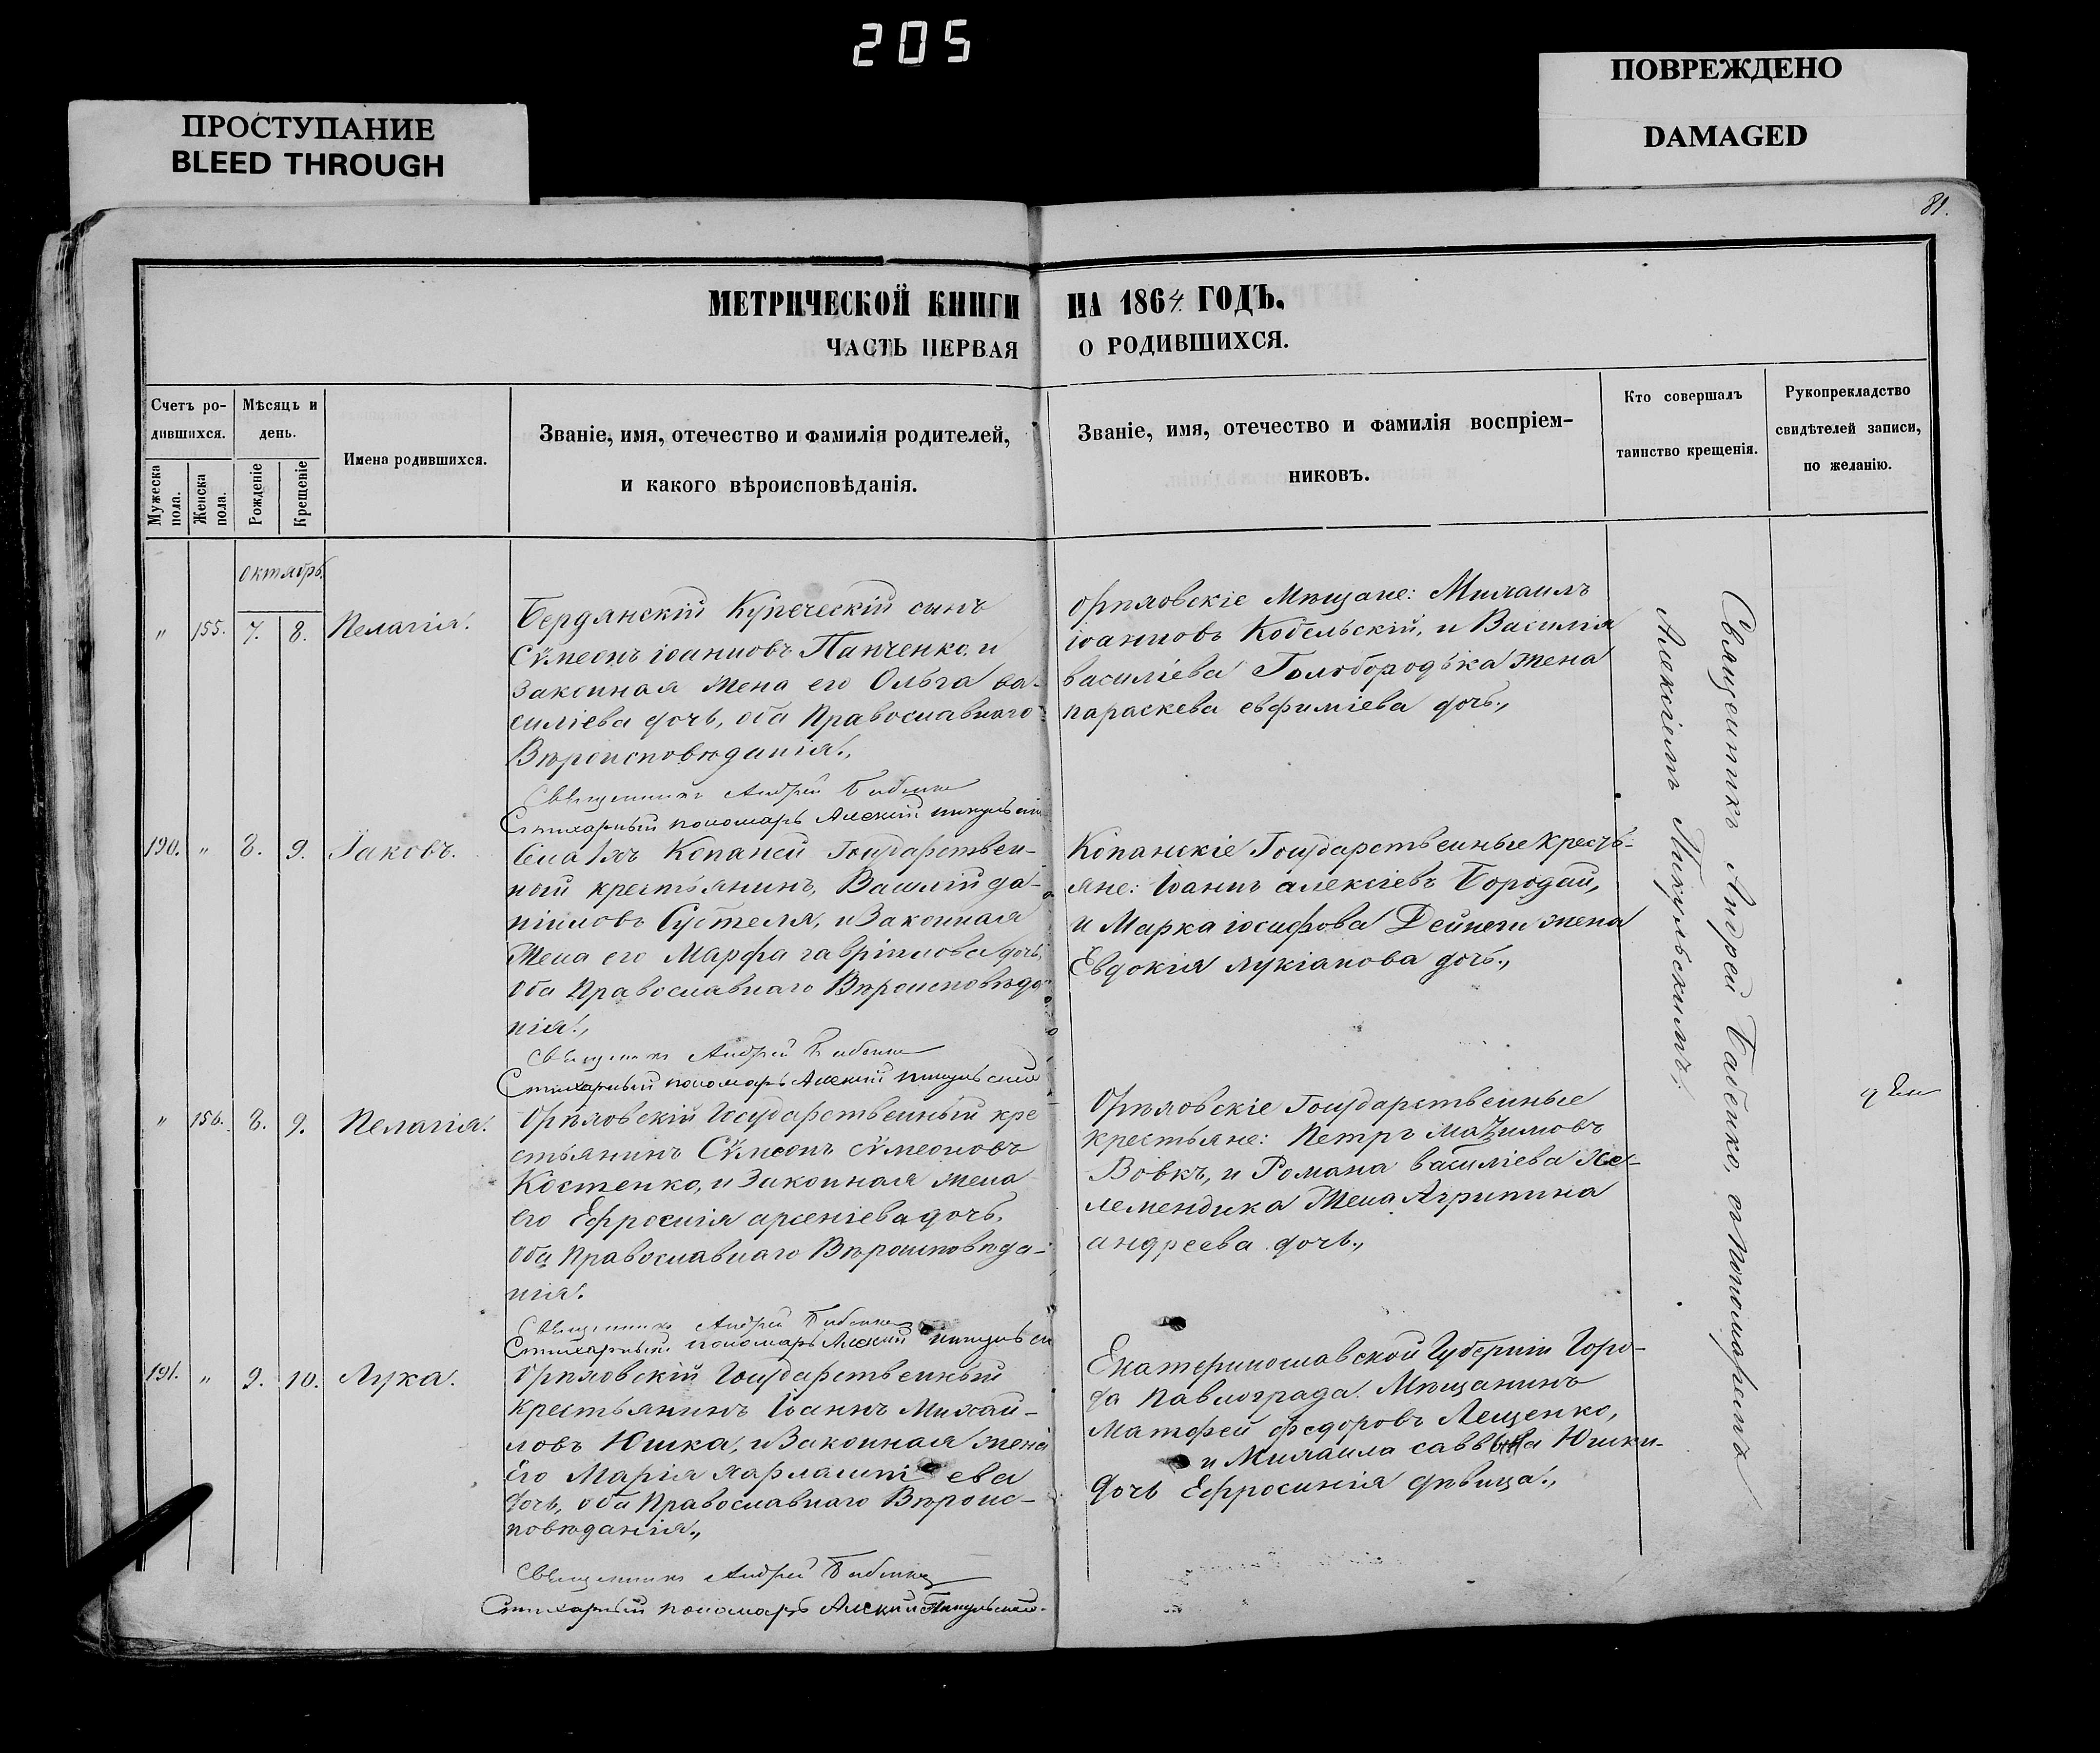 205
ПРОСТУПАНИЕ
BLEED THROUGH
ПОВРЕЖДЕНО
DAMAGED
81.
МЕТРИЧЕСКОЙ КНИГИ НА 1864 ГОДЪ.
ЧАСТЬ ПЕРВАЯ О РОДИВШИХСЯ.
Счетъ ро-
дившихся.
Мужеска
пола.
Женска
пола.
Мѣсяцъ и
день.
Рожденіе
Крещеніе
Имена родившихся.
Званіе, имя, отечество и фамилія родителей,
и какого вѣроисповѣданія.
Званіе, имя, отечество и фамилія воспріем-
никовъ.
Кто совершалъ
таинство крещенія.
Рукоприкладство
свидѣтелей записи,
по желанію.
октябрь
" 155. 7. 8. Пелагія.
Бердянскій Купеческій сынъ
Сѵмеонъ іоанновъ Панченко, и
Законная жена его Ольга ва-
силіева дочь, оба Православнаго
Вѣроисповѣданія.,
Священникъ Андрей Бабенко
Стихарный пономарь Алексій Пикульскій
орѣховскіе Мѣщане: Михаилъ
іоанновъ Кобельскій, и Василія
василіева Голобородька жена
параскева евфиміева дочь.,
190. " 8. 9. Іаковъ.
Села Копаней Государствен-
ный крестьянинъ, Василій да-
ніиловъ Сустеля, и Законная
Жена его Марфа гавріилова дочь,
Оба Православнаго Вѣроисповѣда-
нія.,
Священникъ Андрей Бабенко
Стихарный пономарь Алексій Пикульскій
Копанскіе Государственные Кресть-
яне: Іоаннъ алексіевъ Бородай,
и Марка іосифова Дейнеги жена
Евдокія лукіанова дочь.,
" 156. 8. 9. Пелагія.
Орѣховскій Государственный кре
стьянинъ Сѵмеонъ сѵмеоновъ
Костенко, и Законная жена
его Ефросинія арсеніева дочь,
Оба Православнаго Вѣроисповѣда-
нія.
Священникъ Андрей Бабенко
Стихарный пономарь Алексій
Орѣховскіе Государственные
крестьяне: Петръ
Вовкъ, и Романа василіева Ке-
лемендика Жена Агрипина
андреева дочь.,
191. " 9. 10. Лука.
Орѣховскій Государственный
Крестьянинъ Іоаннъ Михаи-
ловъ Юшка, и Законная жена
Его Марія харлампіева
дочь, оба Православнаго Вѣроис-
повѣданія.,
Священникъ Андрей Бабенко
Стихарный пономарь Алексій Пикульскій.
Екатеринославской Губерніи Горо-
да Павлограда Мѣщанинъ
Матфей федоровъ Лещенко,
и Михаила Юшки-
дочь Ефросинія дѣвица.,
Священникъ Андрей Бабенко, съ пономаремъ
Алексіемъ Пикульскимъ.